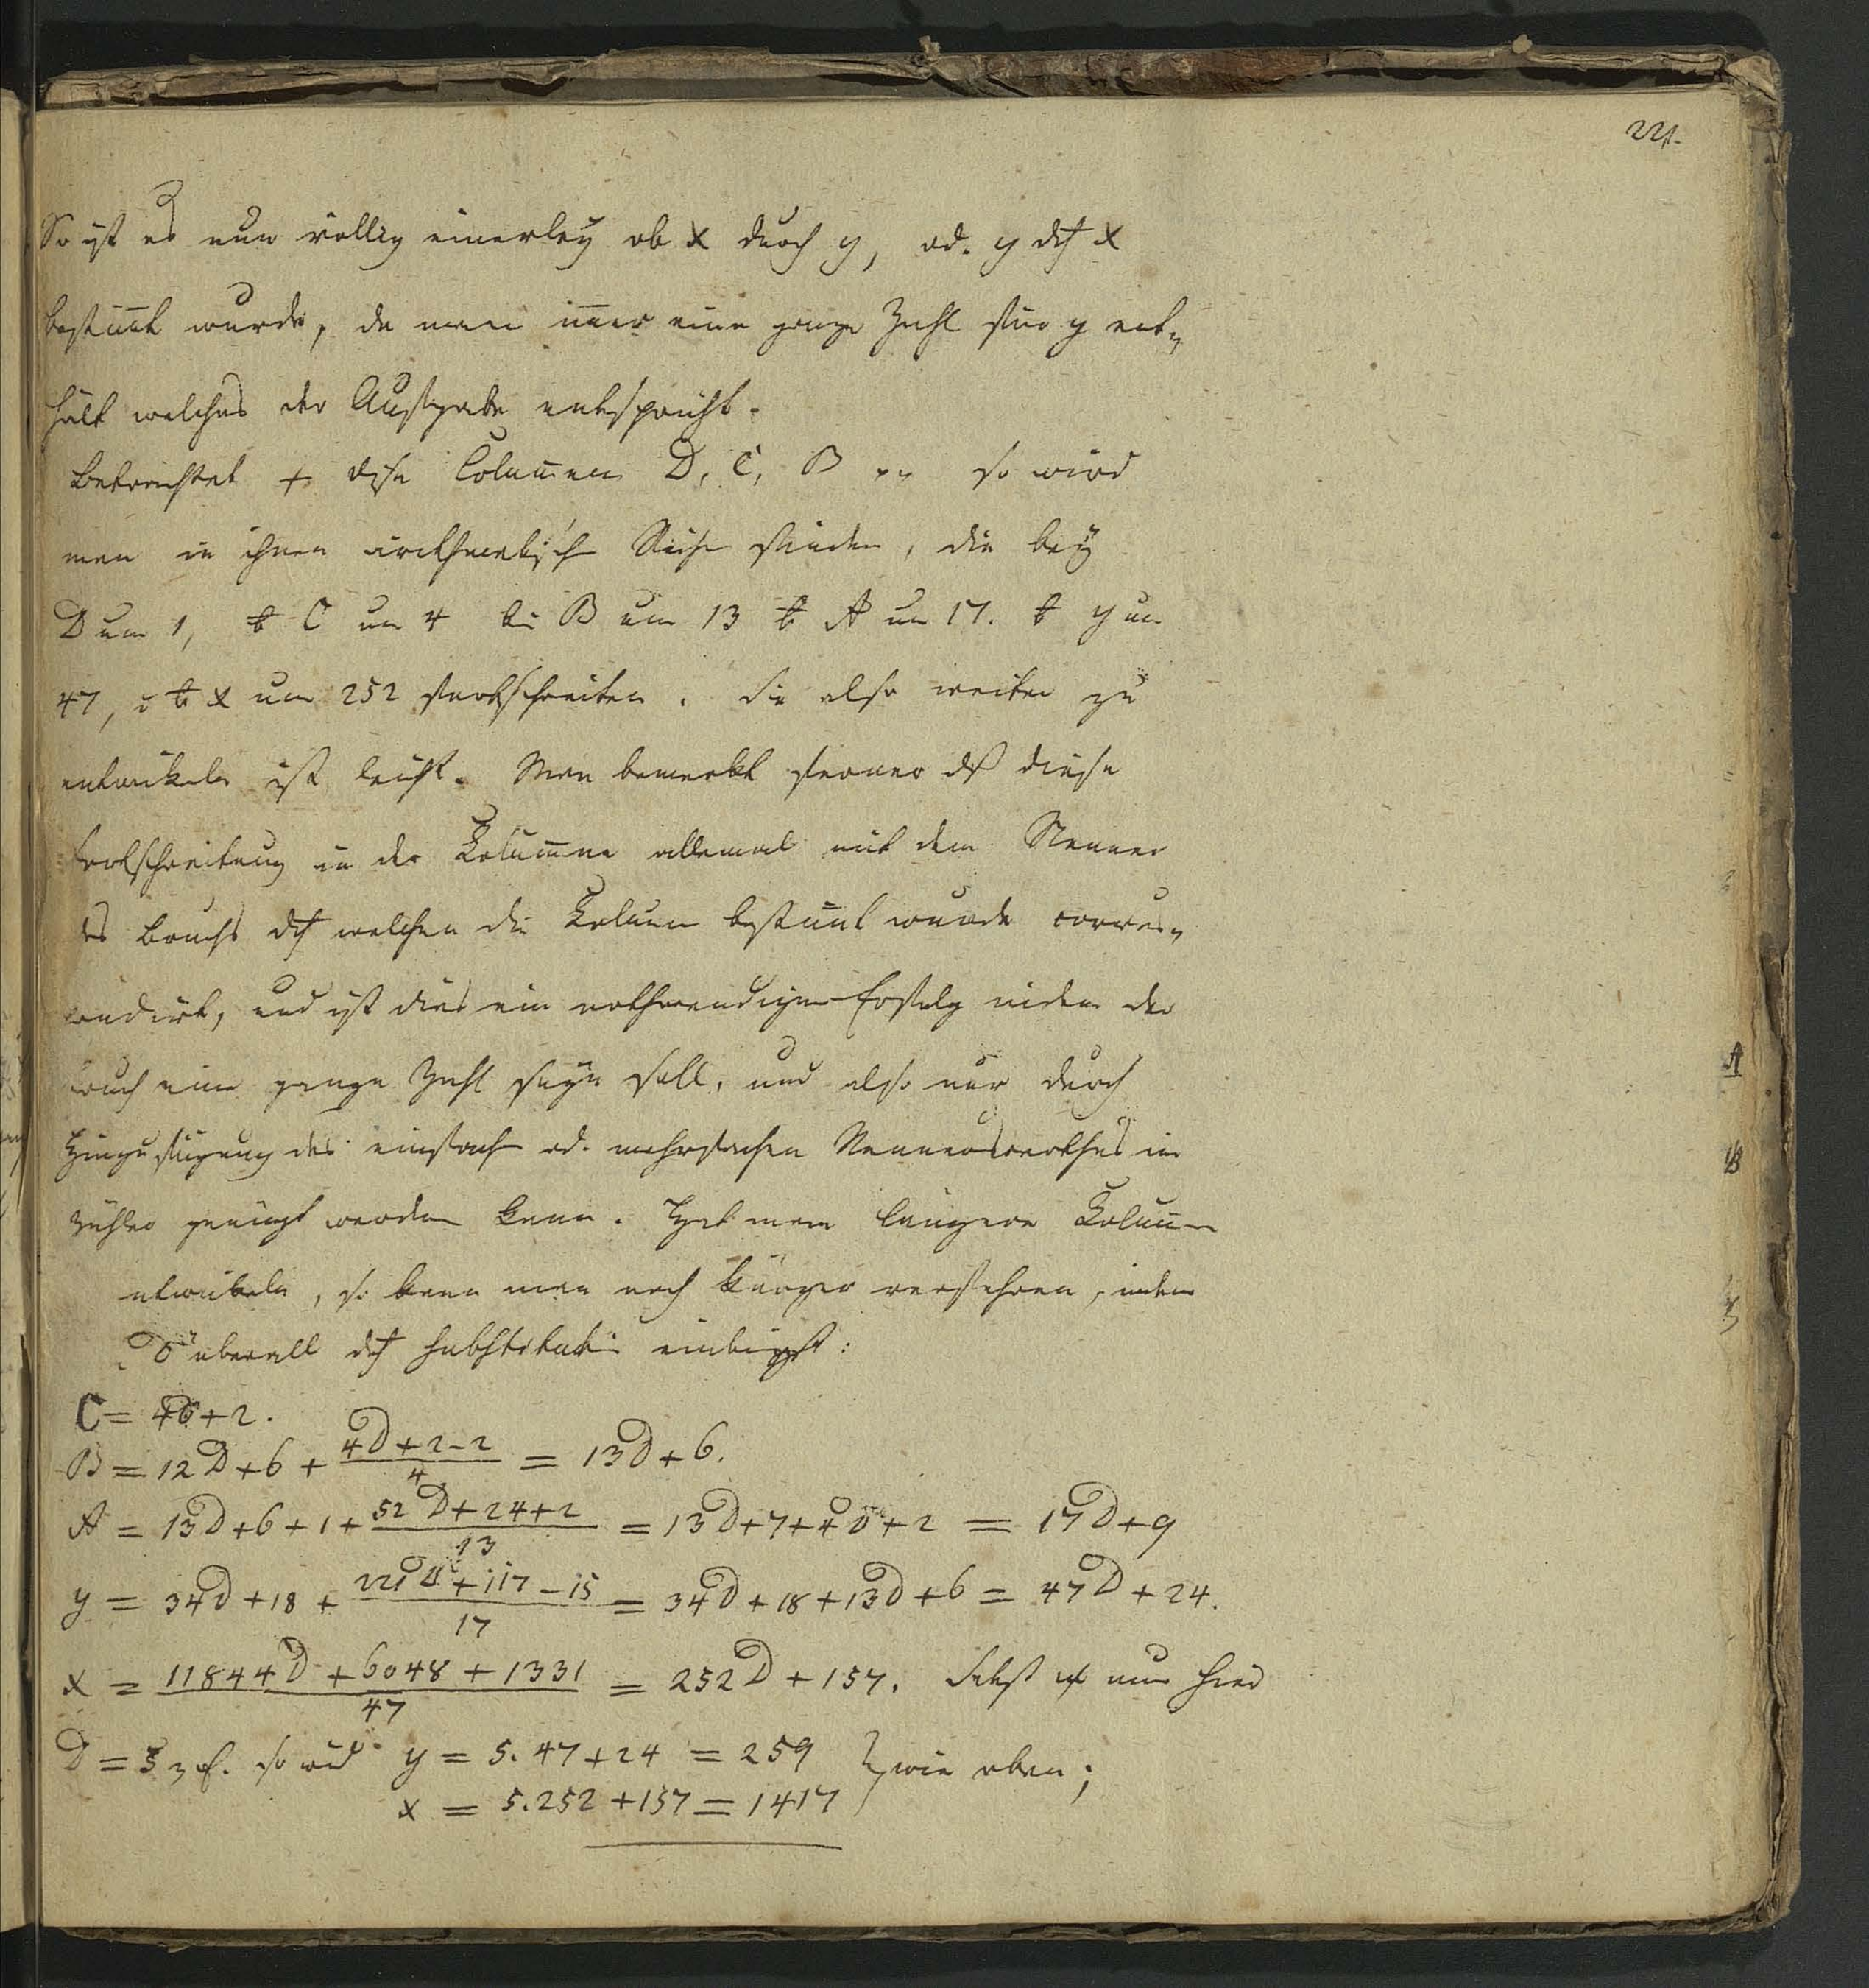 221.
So ist es nun völlig einerley ob x durch y, od. y dch x
bestim̄t wurde, da man im̄er eine ganze Zahl für y ent„
hält welches der Aufgabe entspricht.
Betrachtet + diese Colum̄en D, C, B so wird
man in ihnen arithmetische Reihe finden, die bey
D um 1, b C um 4 bei B um 13 b A um 17. b y um
47, u b x um 252 fortschreiten. Sie also weiter zu
entwikeln ist leicht. Man bemerkt ferner dß diese
Fortschreitung in der Kolum̄ne allemal mit dem Nenner
des Bruchs dch welchen die Kolum̄e bestim̄t wurde corres„
pondirt, und ist dies ein nothwendiger Erfolg indem der
Bruch eine ganze Zahl seyn soll, und also nur durch
Hinzufügung des einfach od. mehrfachen Nennerwerthes im
Zähler gemacht werden kann. Hat man längere Kolum̄en
entwikeln, so kann man noch kürzer verfahren, indem
D überall dch Substitution einbringt:
C = 4D + 2.
B = 12 D + 6 + (4D + 2 - 2)/4 = 13D + 6.
A = 13D + 6 + 1 + (52 D + 24 + 2)/13 = 13D + 7 + 4D + 2 = 17D + 9
y = 34D + 18 + (221 D + 117 - 15)/17 = 34D + 18 + 13D + 6 = 47D + 24.
x = (11844D + 6048 + 1331)/47 = 252D + 157. Setzt nun hier
D = 5 so wird y = 5. 47 + 24 = 259 } wie oben;
x = 5.252 + 157 = 1417